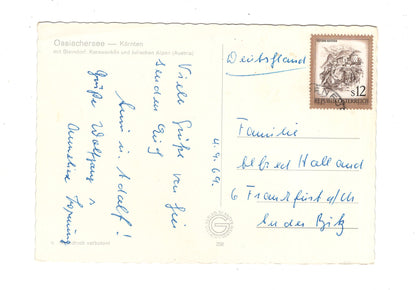 Ossiachersee — Kärnten
mit Steindorf, Karawanken und Julischen Alpen (Austria)
Viele Grüße von hier
senden Euch
Anni u. Adolf!
Grüße Wolfgang u.
4.9.69.
Deutschland
S12
REPUBLIK ÖSTERREICH
Familie
Alfred Holland
6 Frankfurt a/M
In der Bitz
Nachdruck verboten!